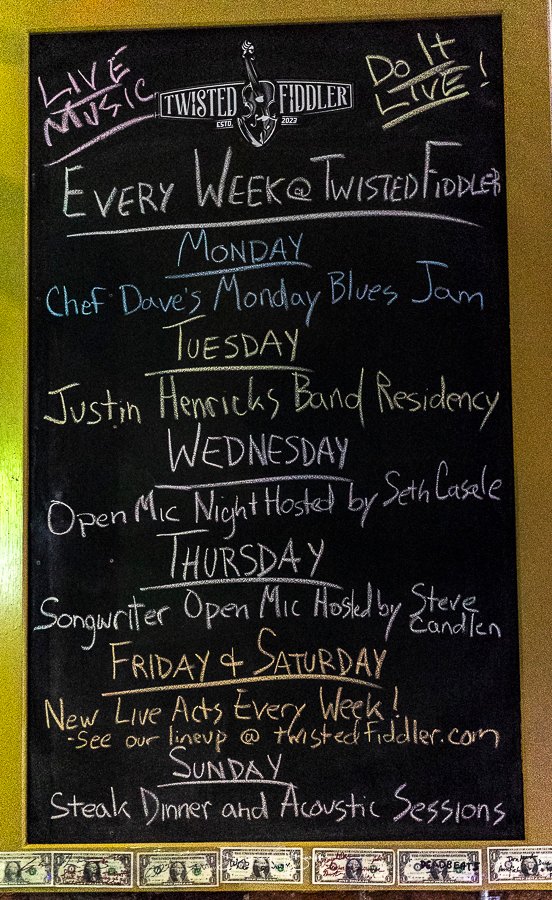 LIVE MUSIC
TWISTED FIDDLER
ESTD. 2023
DO IT LIVE!
EVERY WEEK @ TWISTED FIDDLER
MONDAY
Chef Dave's Monday Blues Jam
TUESDAY
Justin Henricks Band Residency
WEDNESDAY
Open Mic Night Hosted by Seth Casale
THURSDAY
Songwriter Open Mic Hosted by Steve Candlen
FRIDAY & SATURDAY
New Live Acts Every Week!
-See our lineup @ twistedfiddler.com
SUNDAY
Steak Dinner and Acoustic Sessions
DEADBEATS